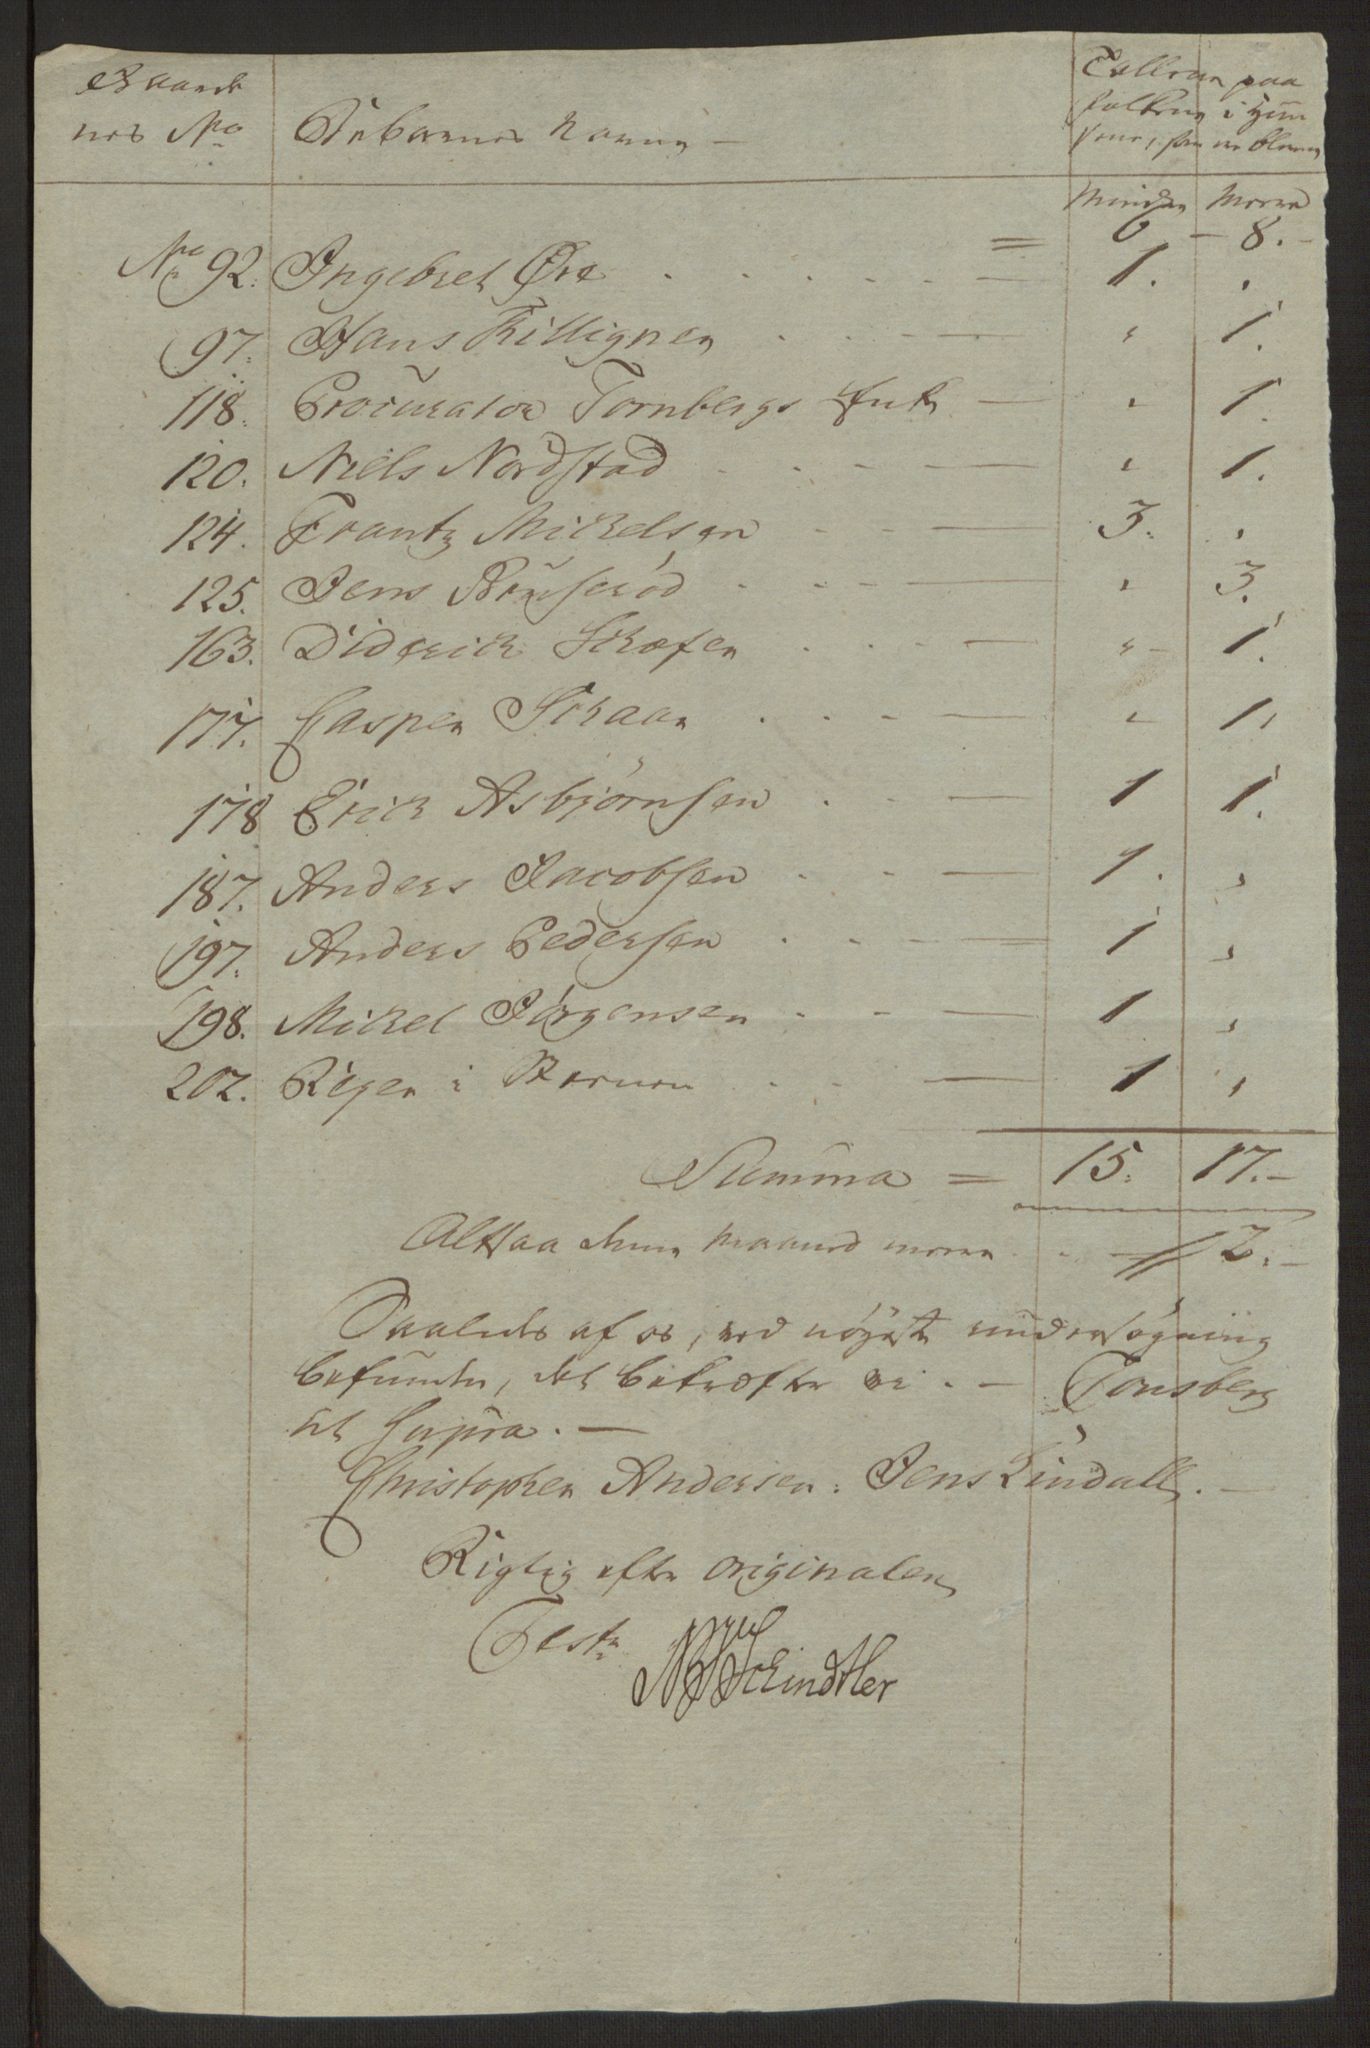 Gaarde Tallene paa
nes No Beboernes Navne — Folkene i Huu
sene, som ere blevne
Mindre Meere
= 6 — 8. —
No 92. Ingebret Øre . . . . . — 1. ,
97. Hans Killignen . . . — " 1.
118. Procurator Tornbergs Enke — " 1.
120. Niels Nordstad . . . — " 1.
124. Frantz Mickelsen . . — 3. ,
125. Jens Rømserød . . . — " 3.
163. Diderich Skafen . . . — " 1.
177. Casper Skaar . . . — " 1,
178 Erich Asbjørnsen . . — 1 1.
187. Anders Jacobsen . . — 1. ,
197. Anders Pedersen . . . — 1 ,
198. Mickel Jørgensen . . — 1 ,
202. Rigen i Stoeruen . . — 1 ,
Summa = 15. 17. —
Altsaa denne Maaned meere . . — 2. —
Saaledes af os, ved nøyeste undersøgning
befunden, det bekræfter vi. — Tonsberg
ut supra. —
Christopher Andersen. Jens Lindall. —
Rigtig efter originalen
Test:
Schindtler